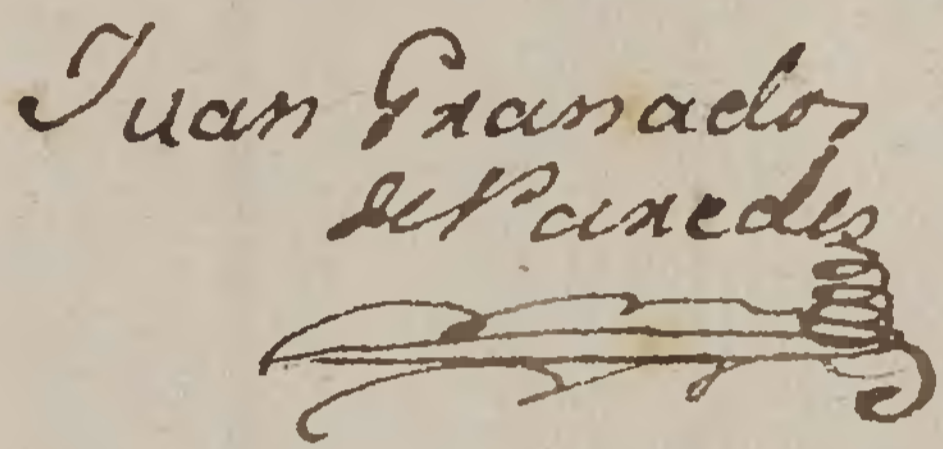 Juan Granados
de Paredes